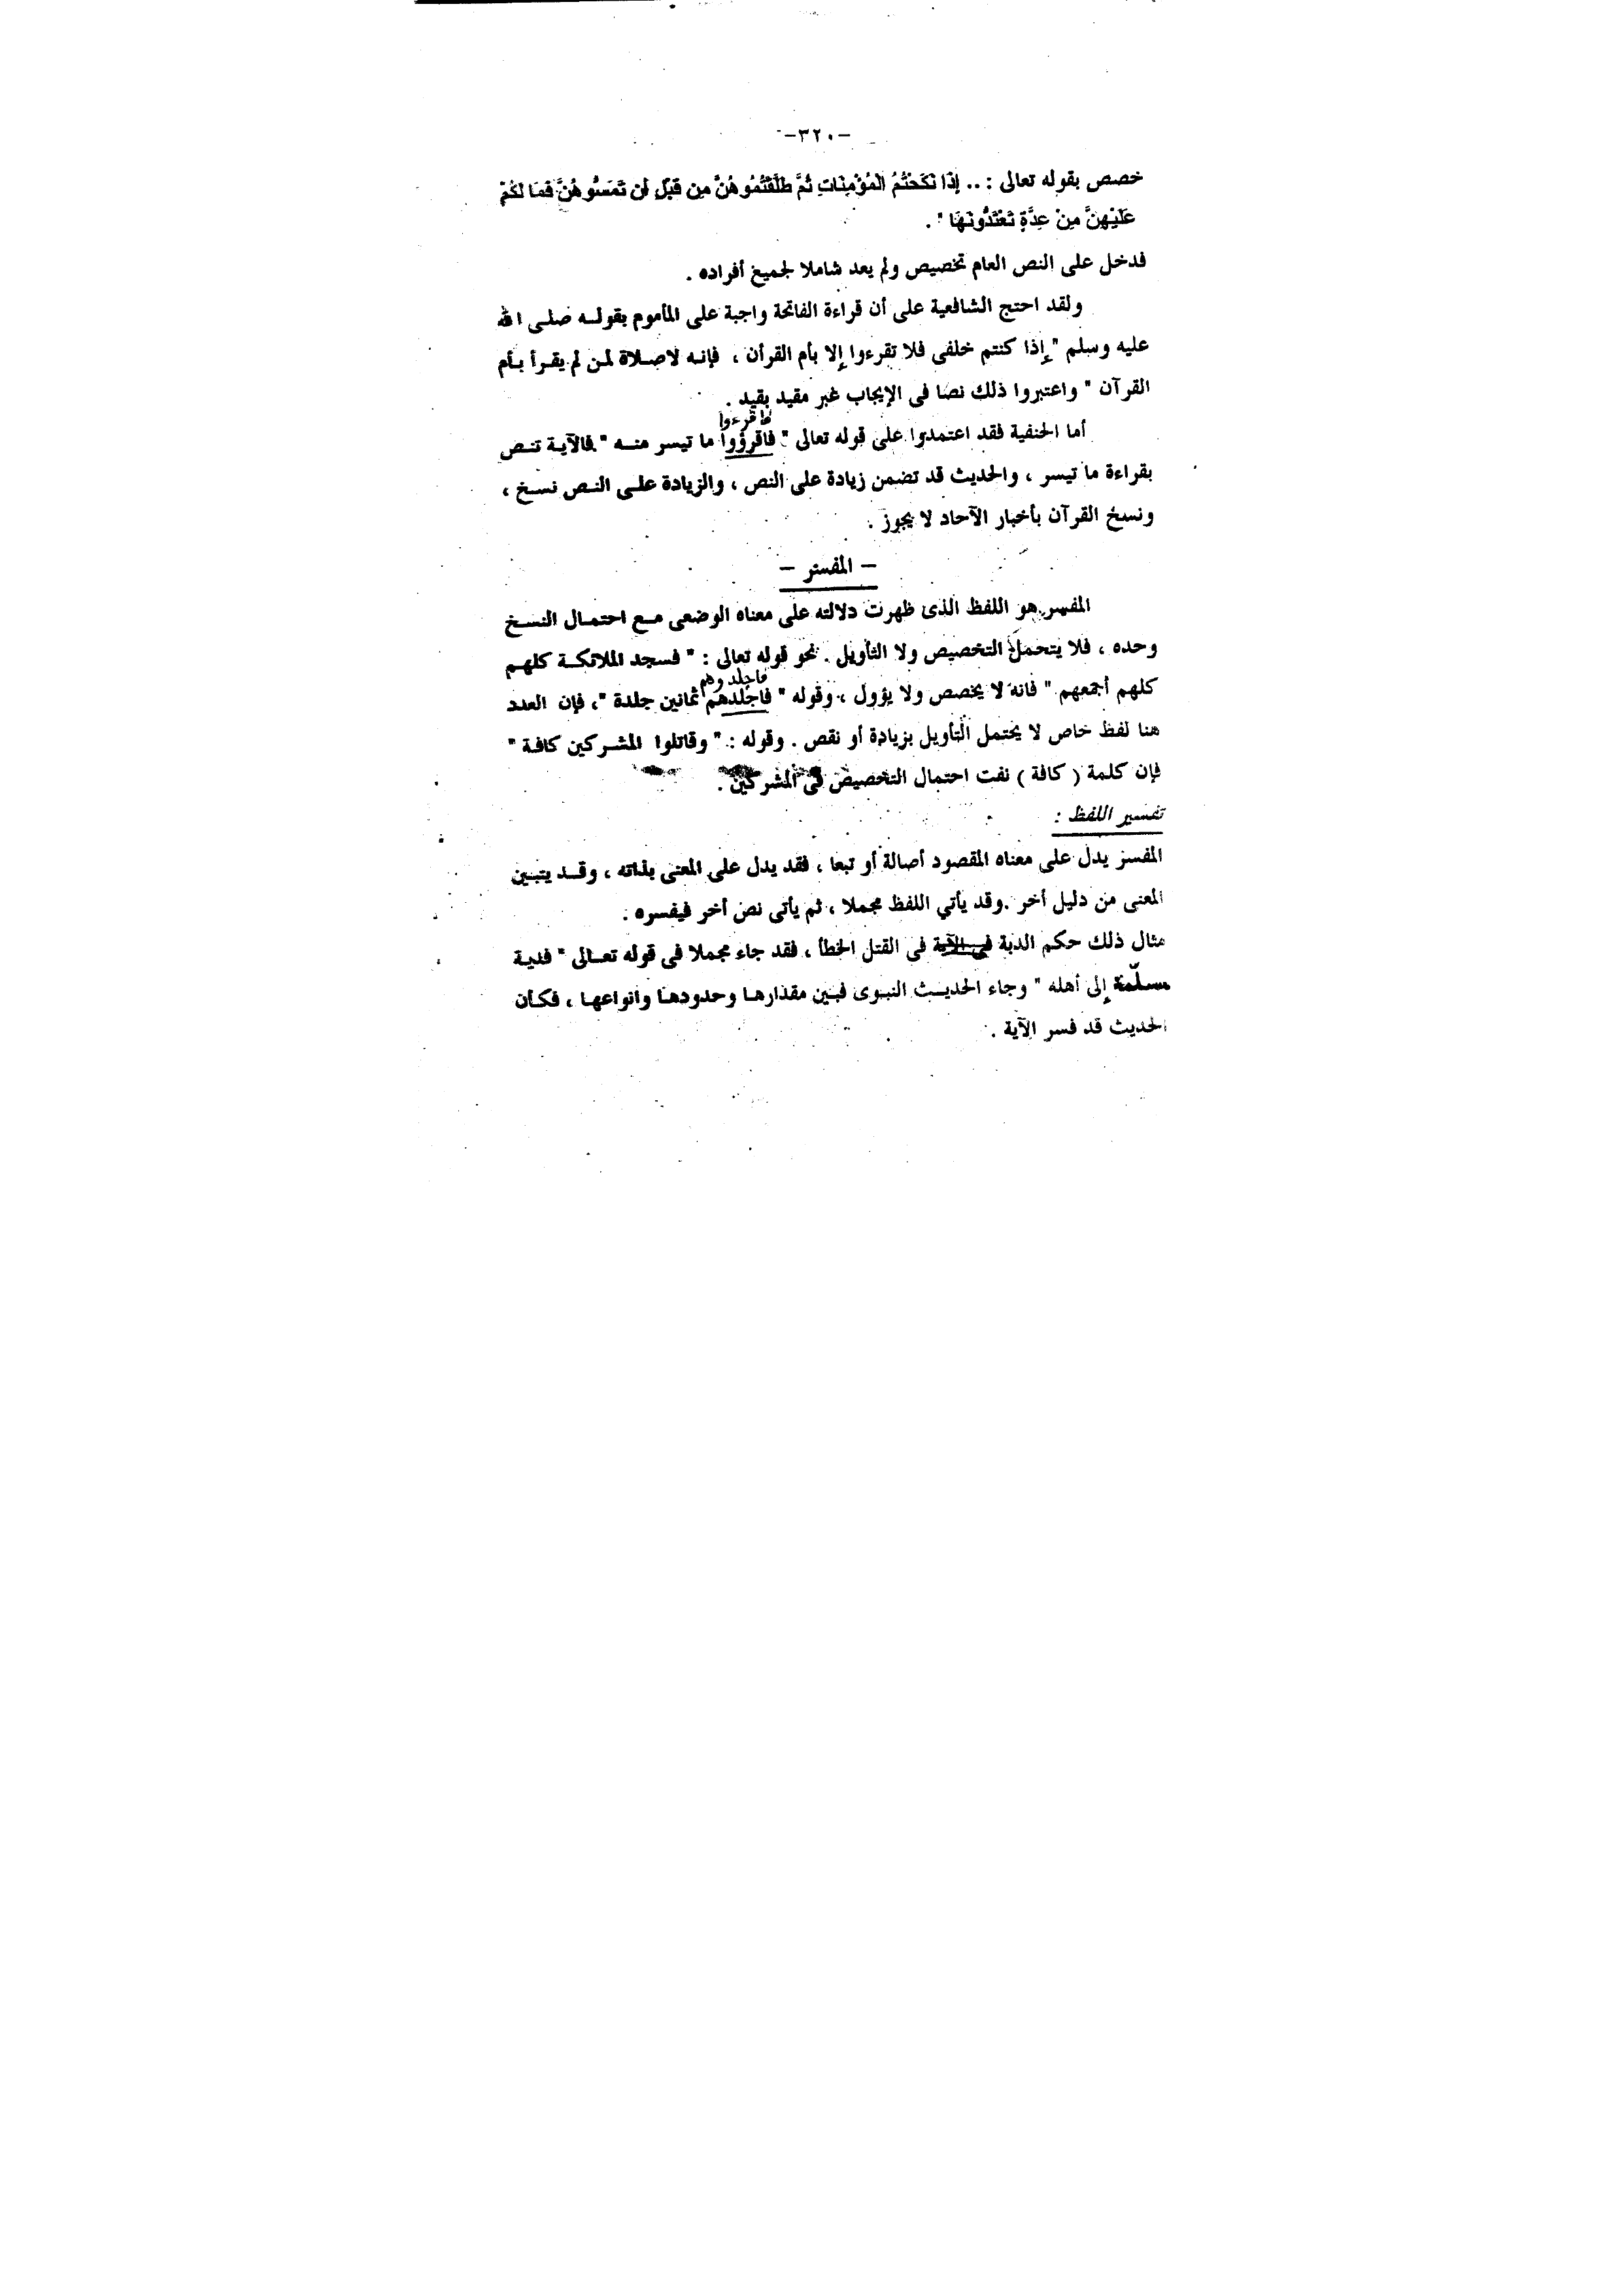 -٣٢٠-
خصص بقوله تعالى : .. إِذَا نَكَحْتُمُ الْمُؤْمِنَاتِ ثُمَّ طَلَّقْتُمُوهُنَّ مِن قَبْلِ أَن تَمَسُّوهُنَّ فَمَا لَكُمْ
عَلَيْهِنَّ مِنْ عِدَّةٍ تَعْتَدُّونَهَا " .
فدخل على النص العام تخصيص ولم يعد شاملا لجميع أفراده .
ولقد احتج الشافعية على أن قراءة الفاتحة واجبة على المأموم بقوله صلى الله
عليه وسلم " إذا كنتم خلفى فلا تقرءوا إلا بأم القرأن ، فإنه لاصلاة لمن لم يقرأ بأم
القرآن " واعتبروا ذلك نصا فى الإيجاب غير مقيد بقيد .
فاقرءوا
أما الحنفية فقد اعتمدوا على قوله تعالى " فاقرؤوا ما تيسر منه " فالآية تنص
بقراءة ما تيسر ، والحديث قد تضمن زيادة على النص ، والزيادة على النص نسخ ،
ونسخ القرآن بأخبار الآحاد لا يجوز .
– المفسر –
المفسر هو اللفظ الذى ظهرت دلالته على معناه الوضعى مع احتمال النسخ
وحده ، فلا يتحمل التخصيص ولا التأويل . نحو قوله تعالى : " فسجد الملائكة كلهم
فاجلدوهم
كلهم أجمعهم " فانه لا يخصص ولا يؤول ، وقوله " فاجلدهم ثمانين جلدة "، فإن العدد
هنا لفظ خاص لا يحتمل التأويل بزيادة أو نقص . وقوله : " وقاتلوا المشركين كافة "
فإن كلمة ( كافة ) نفت احتمال التخصيص فى المشركين .
تفسير اللفظ :
المفسر يدل على معناه المقصود أصالة أو تبعا ، فقد يدل على المعنى بذاته ، وقد يتبين
المعنى من دليل أخر .وقد يأتي اللفظ مجملا ، ثم يأتى نص أخر فيفسره .
مثال ذلك حكم الدية فى الآية فى القتل الخطأ ، فقد جاء مجملا فى قوله تعالى " فدية
مسلّمة إلى أهله " وجاء الحديث النبوى فبين مقدارها وحدودها وأنواعها ، فكأن
الحديث قد فسر الآية .